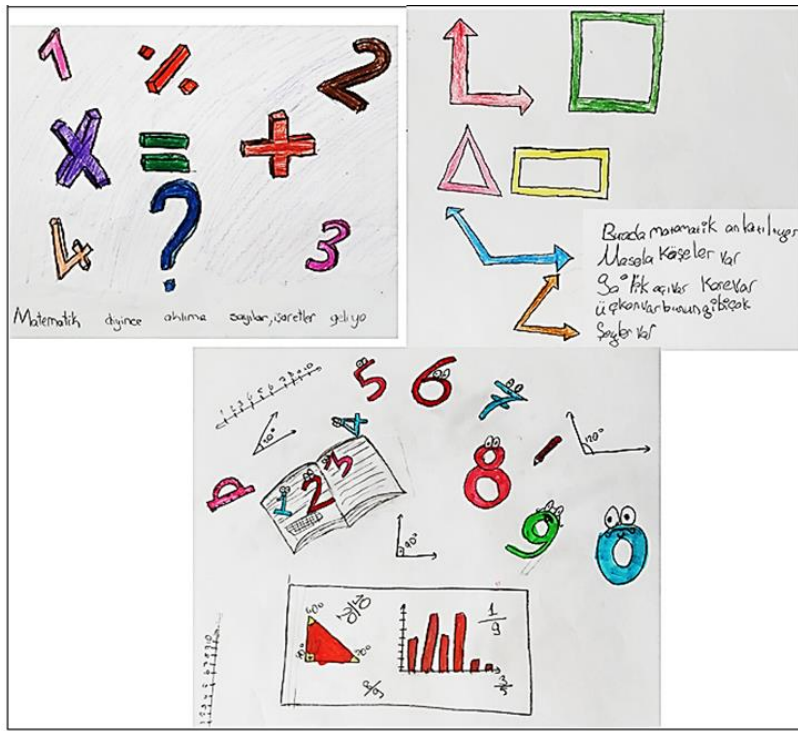 1 % 2
x = +
4 ? 3
Matematik diyince aklıma sayılar, işaretler geliyo
Burada matematik anlatılıyor
Masela Köşeler var
90°lik açıvar Karevar
üçkenvar bunun gibiçok
Şeyler var
5 6 7
4
1 2 3
8
9 0
120°
90°
60°
1/9